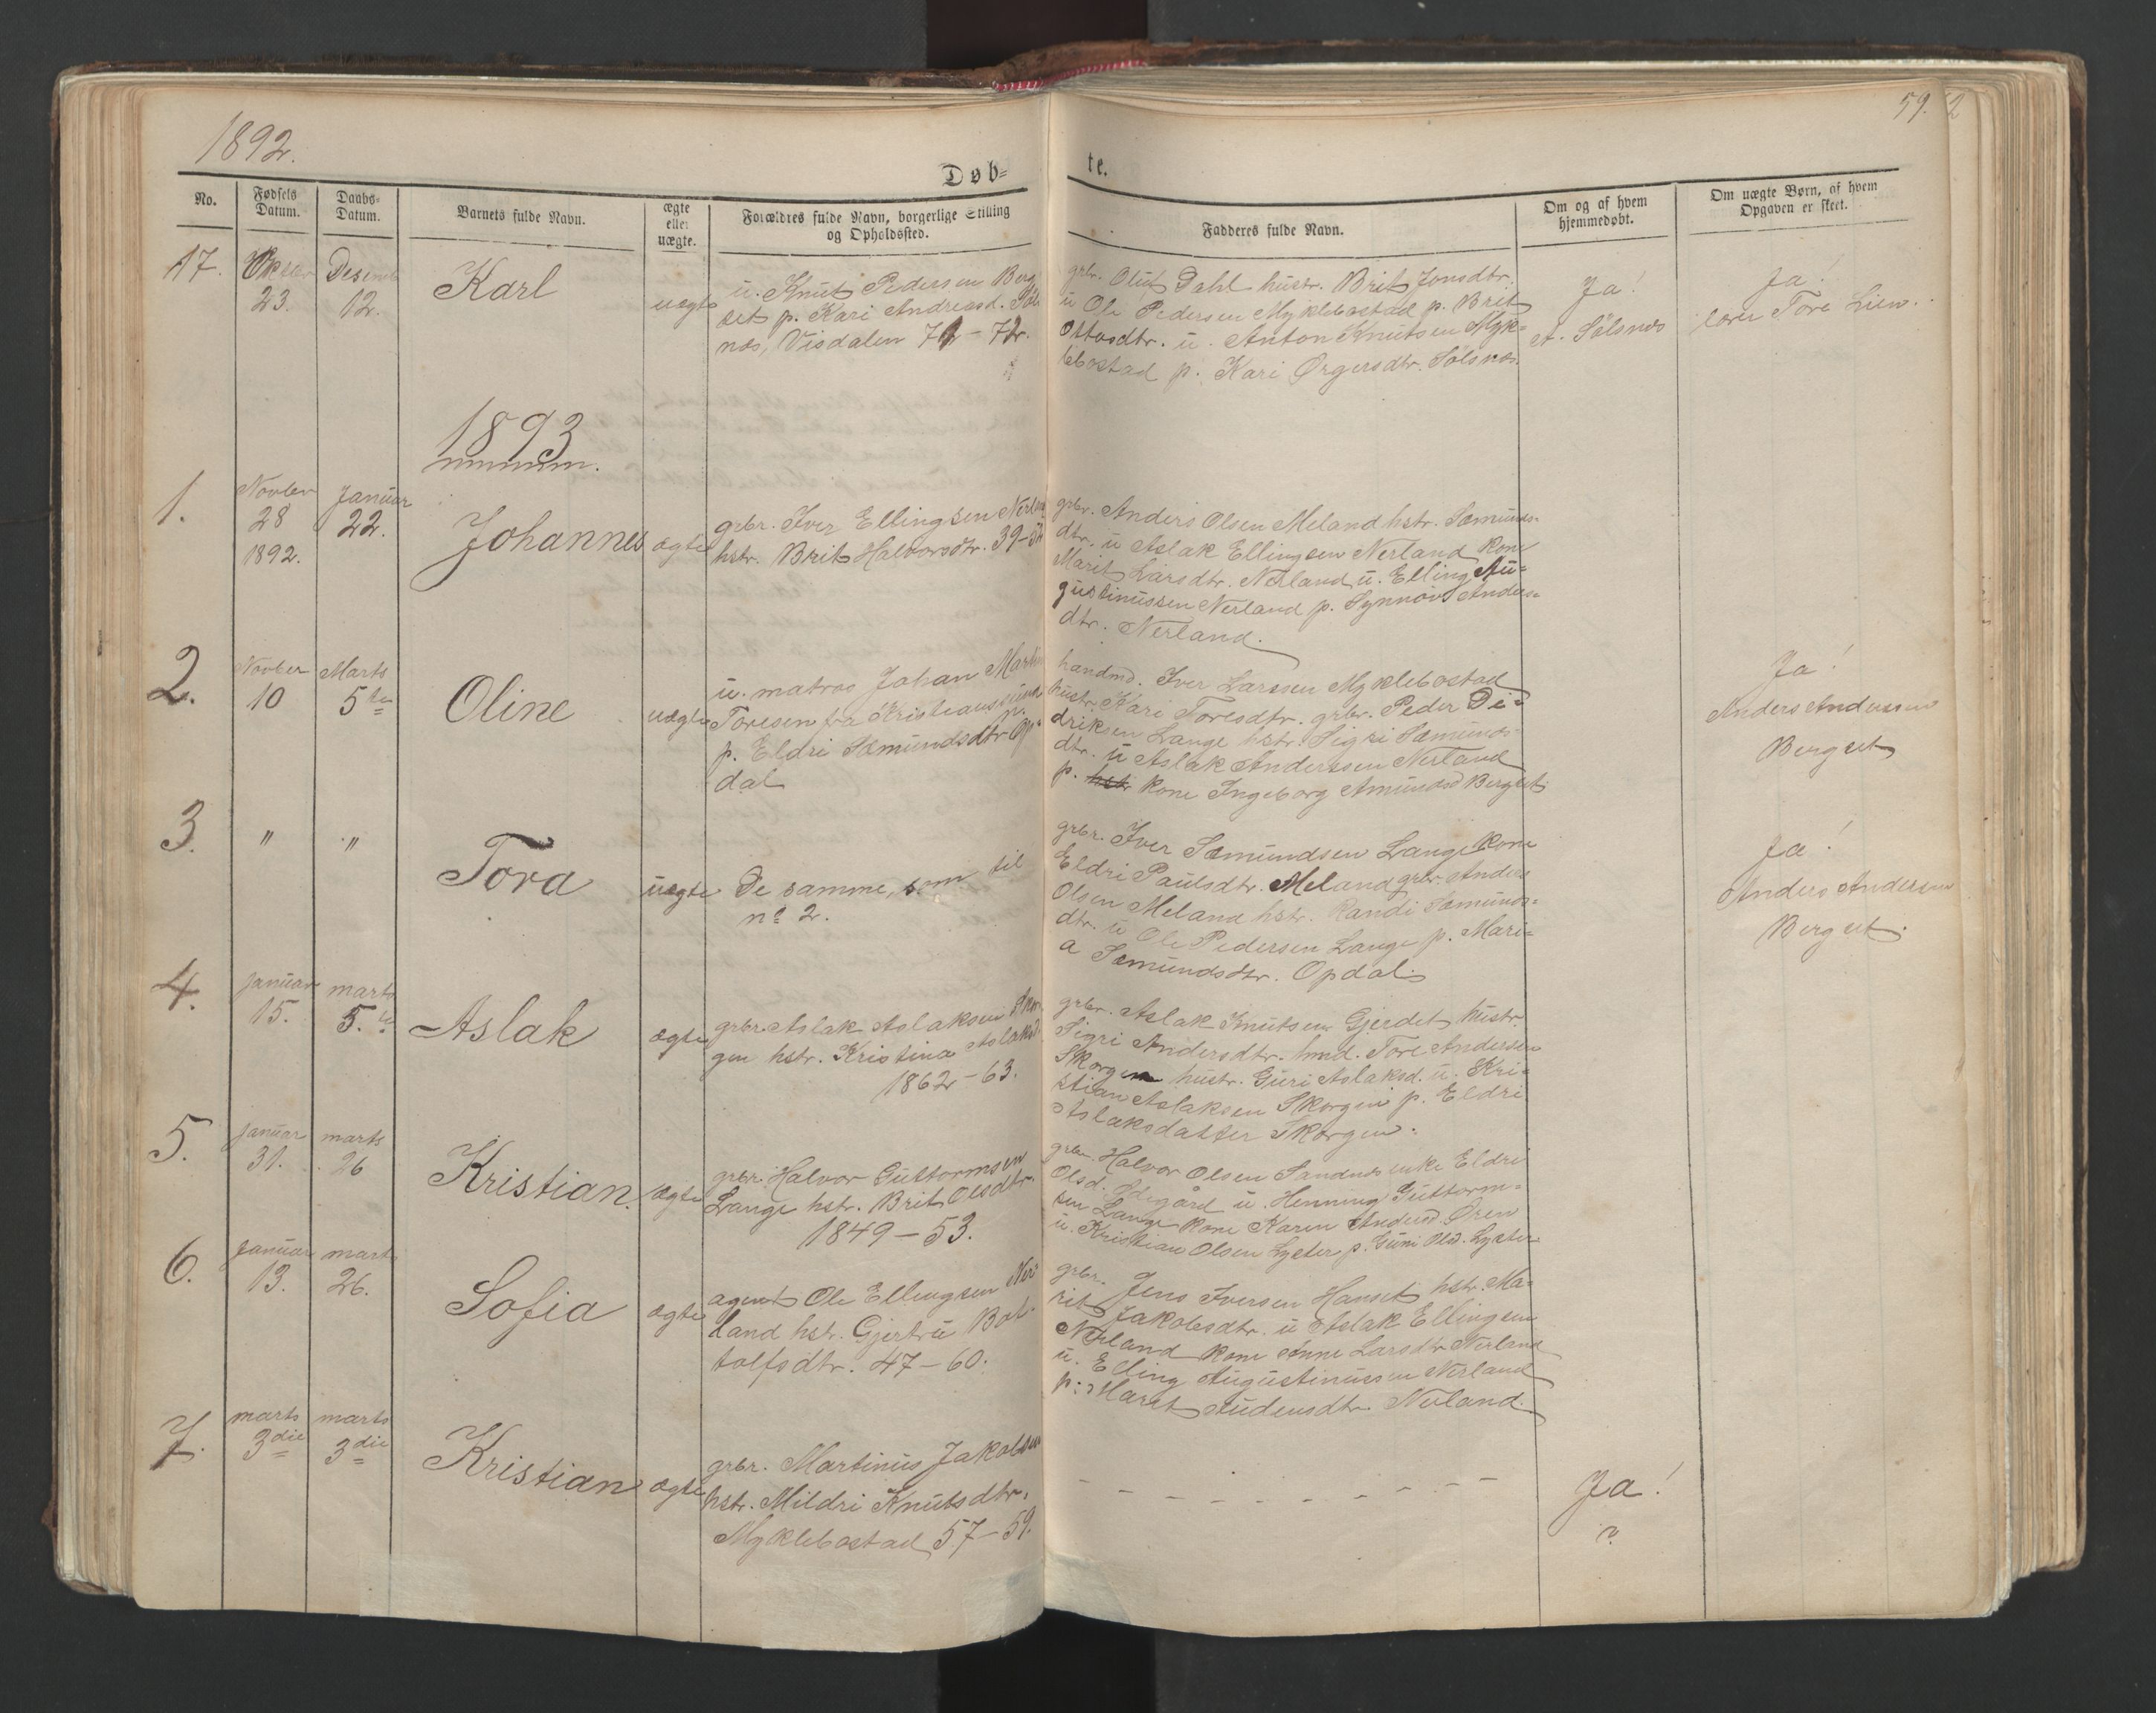 1892.
59.
Døb=
te.
No.
Fødsels Datum.
Daabs-Datum.
Barnets fulde Navn.
ægte eller uægte.
Forældres fulde Navn, borgerlige Stilling og Opholdssted.
Fadderes fulde Navn.
Om og af hvem hjemmedøbt.
Om uægte Børn, af hvem Opgaven er skeet.
17.
23.
12.
Karl
uægte
u. Knut Pedersen Berg
set p. Kari Andreasd. Søls
nes, Visdalen
grbr. Oluf Dahl hustr. Brit Jonsdtr.
u Ole Pedersen Myklebostad p. Brit
Ottosdtr. u. Anton Knutsen Myk=
lebostad p. Kari Ørgersdtr. Sølsnes.
Ja!
A. Sølsnes
Ja!
Tore Lien.
1893
1.
Novber
28
1892.
Januar
22.
Johannes
ægte
grbr. Iver Ellingsen
hstr. Brit Halvorsdtr.
grbr. Anders Olsen Meland hstr. Sæmunds=
dtr. u Aslak Ellingsen Nerland kone
Marit Larsdtr. Nerland u. Elling Au=
gustinussen Nerland p. Synnøv Anders=
dtr. Nerland.
2.
Novber
10
Marts
5te
Oline
uægte
u. matros Johan Martin
Toresen fra Kristianssund
p. Eldri Sæmundsdtr Op=
dal
handmd. Iver Larssen Myklebostad
hustr. Kari Toresdtr. grbr. Peder Di=
driksen Lange hstr. Sigri Sæmunds=
dtr. u Aslak Anderssen Nerland
p. hstr kone Ingeborg Amundsd Bergset
Ja!
Anders Anderssen
Bergset
3.
"
"
Tora
uægte
De samme, som til
no 2.
grbr. Iver Sæmundsen Lange kone
Eldri Paulsdtr. Meland grbr. Anders
Olsen Meland hstr. Randi Sæmunds=
dtr. u Ole Pedersen Lange p. Mari=
a Sæmundsdtr. Opdal.
Ja!
Anders Andersen
Bergset.
4.
januar
15.
marts
5.te
Aslak
ægte
grbr. Aslak Aslaksen Skor
gen hstr. Kristina Aslaksd.
1862-63.
grbr. Aslak Knutsen Gjerdet hustr.
Sigri Andersdtr. hmd. Tore Andersen
Skorgen hustr. Guri Aslaksd. u. Kri=
stian Aslaksen Skorgen p. Eldri
Aslaksdatter Skorgen.
5.
januar
31.
marts
26
Kristian.
ægte
grbr. Halvor Guttormsen
Lange hstr. Brit Olsdtr.
1849-53.
grbr. Halvor Olsen Sandnes enke Eldri
Olsd. Ødegård u. Henning Guttorm=
sen Lange kone Karen Andersd. Øren
u. Kristian Olsen Lyeter p. Guni Olsd. Lyeter
6.
januar
13.
marts
26.
Sofia
ægte
agent Ole Ellingsen Ner
land hstr. Gjertru Bot
tolfsdtr. 47-60.
grbr. Jens Iversen Hanset hstr. Ma=
rit Jakobsdtr. u Aslak Ellingsen
Nerland kone Anne Larsdtr Nerland
u. Elling Augustinussen Nerland
p. Marit Andersdtr. Nerland.
7.
marts
3die
marts
3die
Kristian
ægte
grbr. Martinus Jakobsen
hstr. Mildri Knutsdtr.
Myklebostad 57-59.
- - - - - - - - - -
Ja!
?